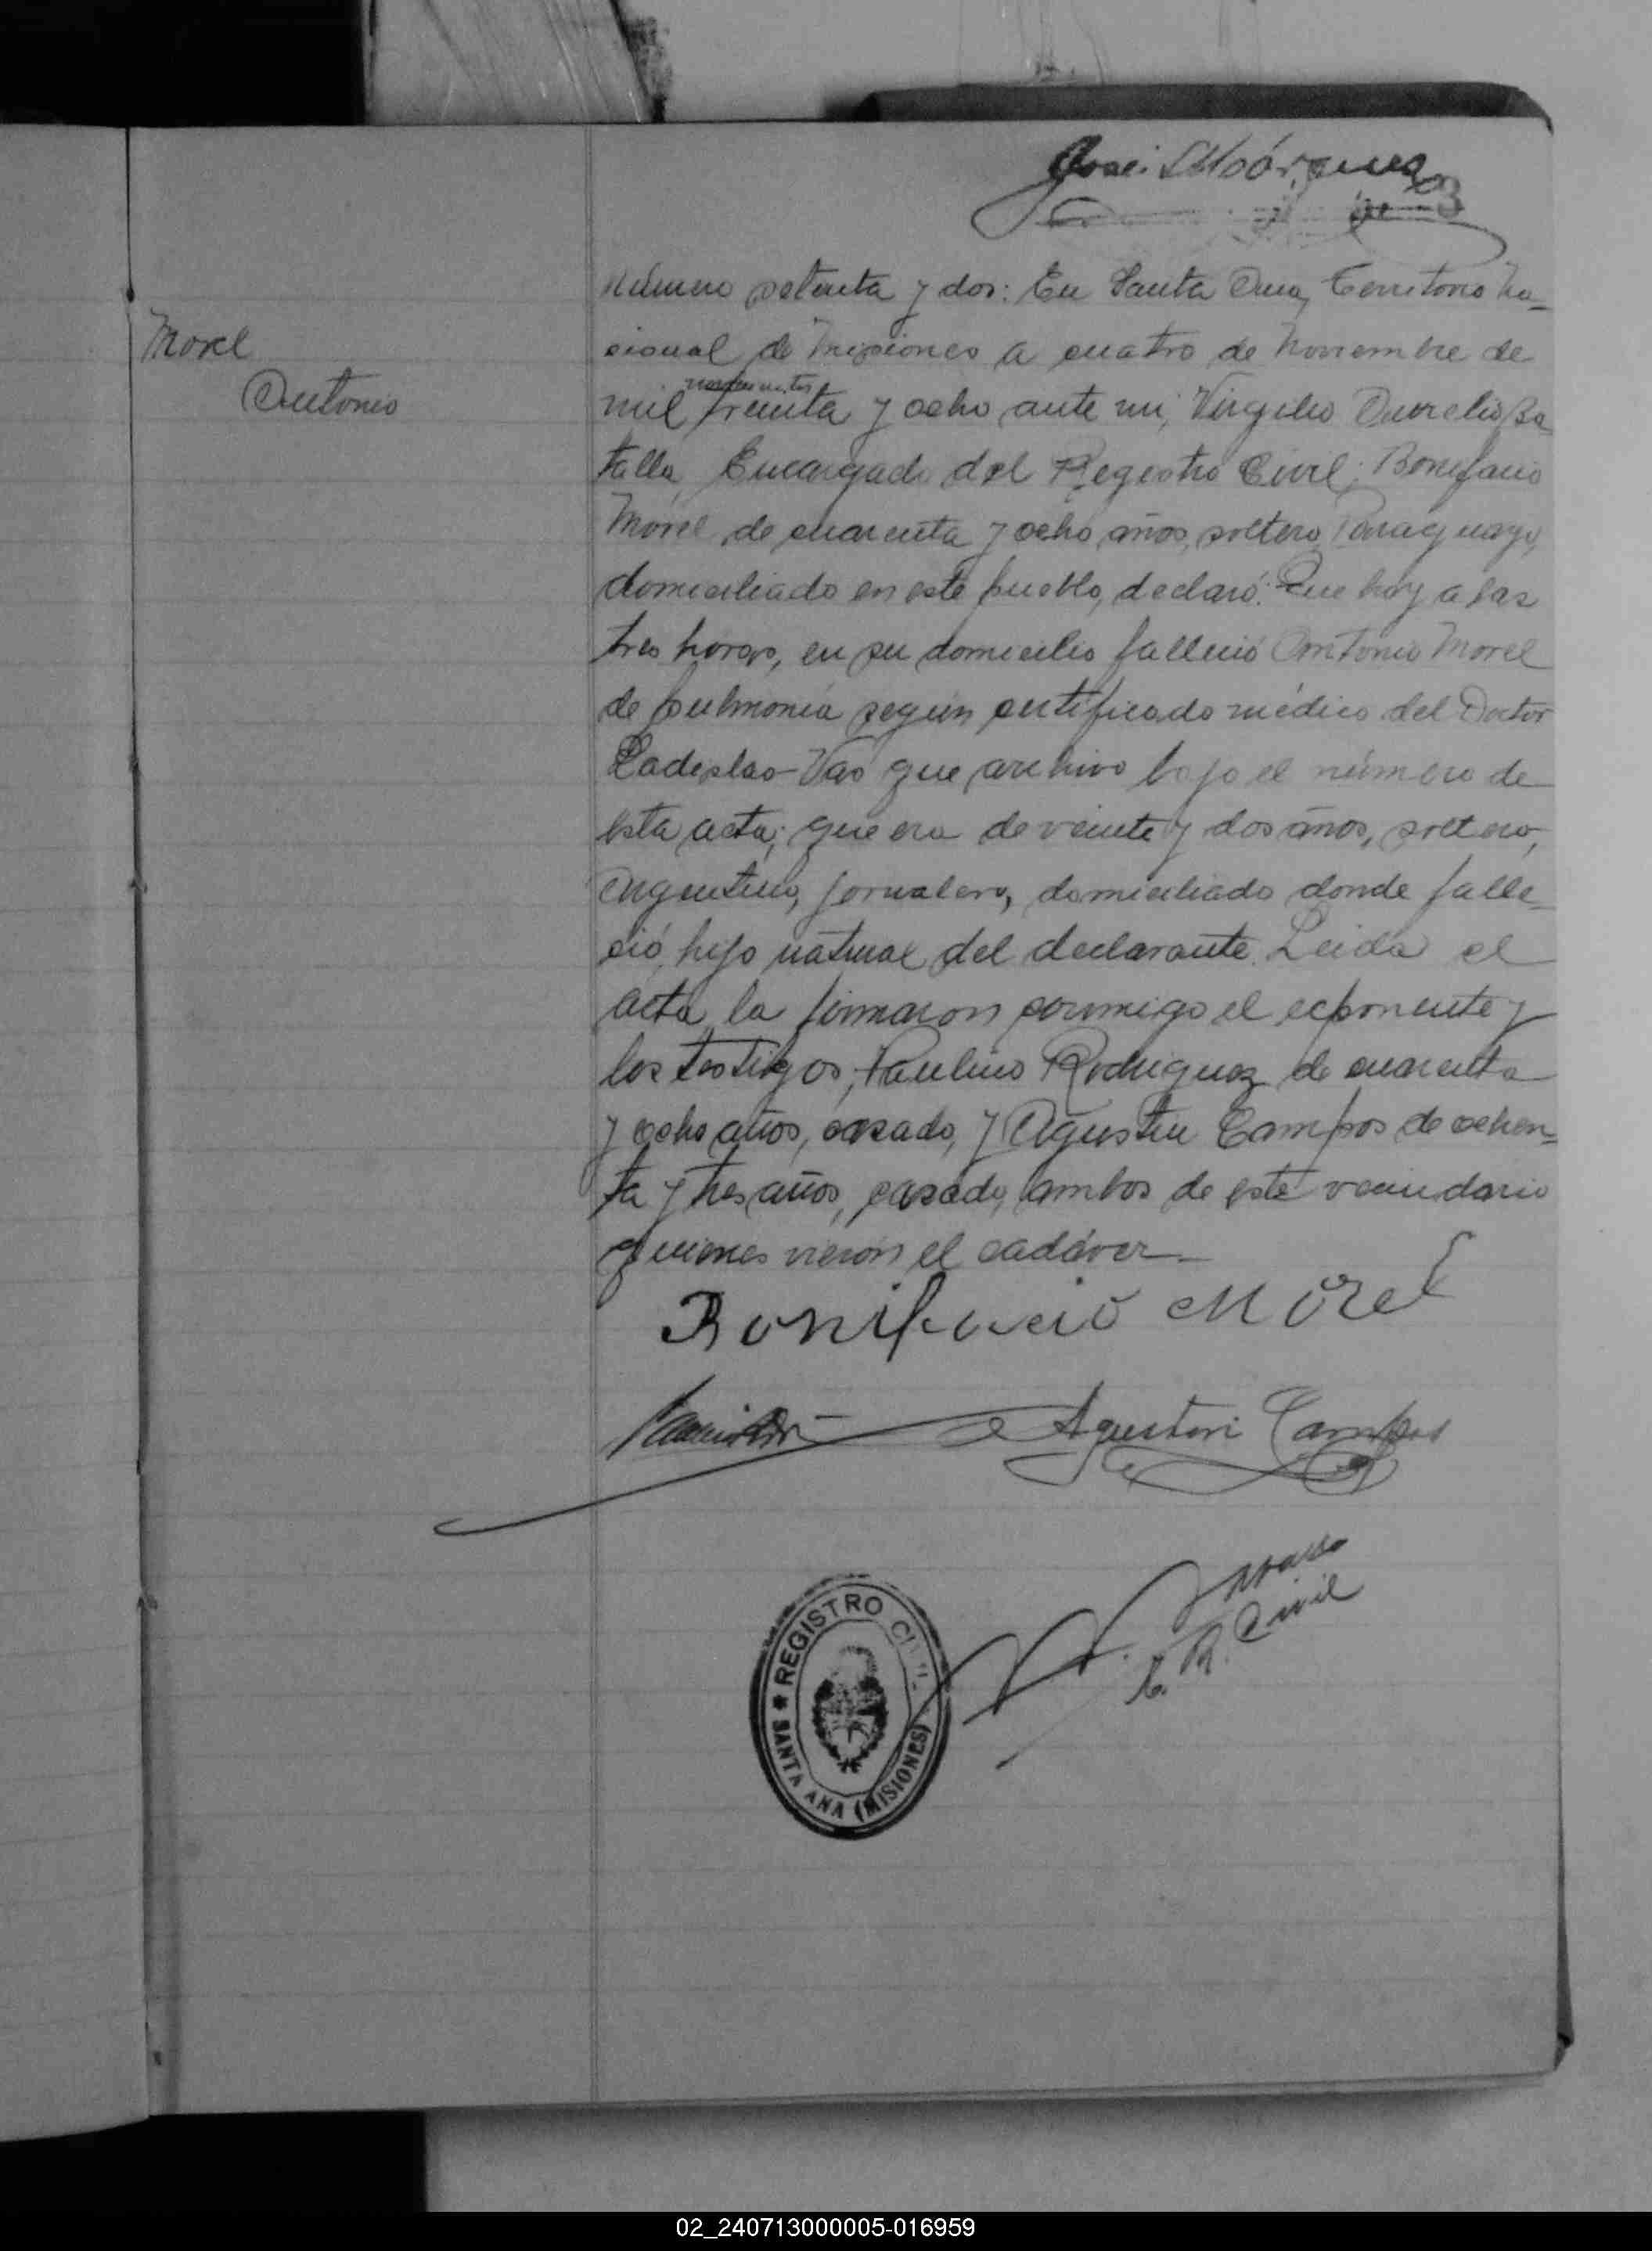 José Márquez
Número setenta y dos: En Santa Ana, Territorio Na-
Morel
cional de Misiones a cuatro de Noviembre de
Antonio
novecientos
mil treinta y ocho ante mi, Virgilio Aurelio Ba-
talla, Encargado del Registro Civil; Bonifacio
Morel de cuarenta y ocho años, soltero, Paraguayo,
domiciliado en este pueblo, declaró: Que hoy a las
tres horas, en su domicilio falleció Antonio Morel
de pulmonía según certificado médico del Doctor
Ladeslao que archivo bajo el número de
esta acta; que era de veinte y dos años, soltero,
Argentino, jornalero, domiciliado donde falle-
ció, hijo natural del declarante. Leida el
acta la firmaron conmigo el exponente y
los testigos; Paulino Rodriguez de cuarenta
y ocho años, casado, y Agustin Campos de ochen-
ta y tres años, casado, ambos de este vecindario
quienes vieron el cadáver.
Bonifacio Morel
Agustin Campos
E. R. Civil
REGISTRO CIVIL
SANTA ANA (MISIONES)
02_240713000005-016959